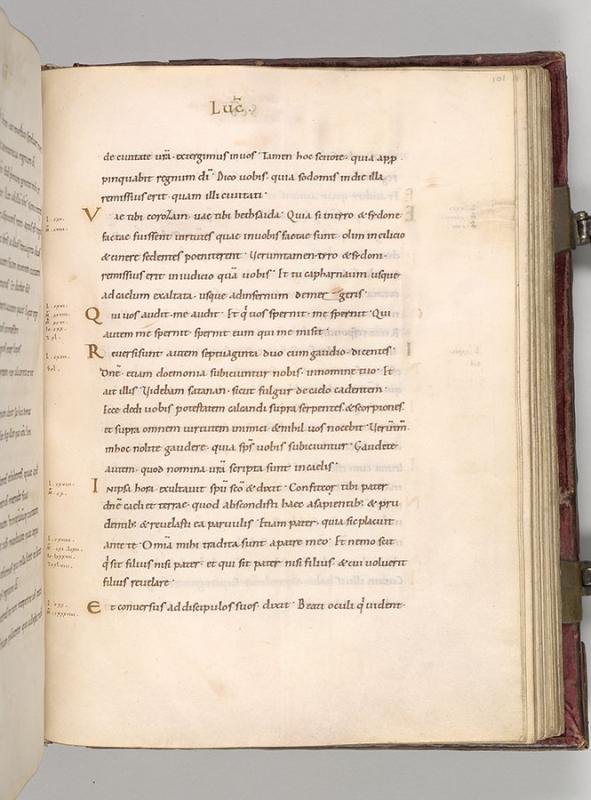 101
Luc̄
de ciuitate ur̄a · extergimus in uos · Tamen hoc scitote · quia app
pinquabit regnum dī · Dico uobis · quia sodomis in die illa
remissius erit · quam illi ciuitati ·
Vae tibi corozain · uae tibi bethsaida · Quia si in tyro & sydone
factae fuissent uirtutes quae in uobis factae sunt · olim in cilicio
& cinere sedentes poeniterent · Veruntamen tyro & sydoni
remissius erit in iudicio quā uobis · Et tu capharnaum usque
ad caelum exaltata · usque ad infernum demergeris ·
Qui uos audit · me audit · Et q̄ uos spernit · me spernit · Qui
autem me spernit · spernit eum qui me misit ·
Reuersi sunt autem septuaginta duo cum gaudio · dicentes ·
Dn̄e · etiam daemonia subiciuntur nobis · in nomine tuo · Et
ait illis · Videbam satanan · sicut fulgur de caelo cadentem ·
Ecce dedi uobis potestatem calcandi supra serpentes & scorpiones
et supra omnem uirtutem inimici · & nihil uos nocebit · Verūtm̄
in hoc nolite gaudere · quia sp̄s uobis subiciuntur · Gaudete
autem · quod nomina ur̄a scripta sunt in caelis ·
In ipsa hora · exultauit sp̄u scō & dixit · Confiteor tibi pater
dn̄e caeli et terrae · quod abscondisti haec a sapientib; & pru
dentib; & reuelasti ea paruulis · Etiam pater · quia sic placuit
ante te · Om̄ia mihi tradita sunt a patre meo · Et nemo scit
q̄ sit filius nisi pater · et qui sit pater nisi filius · & cui uoluerit
filius reuelare ·
Et conuersus ad discipulos suos · dixit · Beati oculi q̄ uident ·